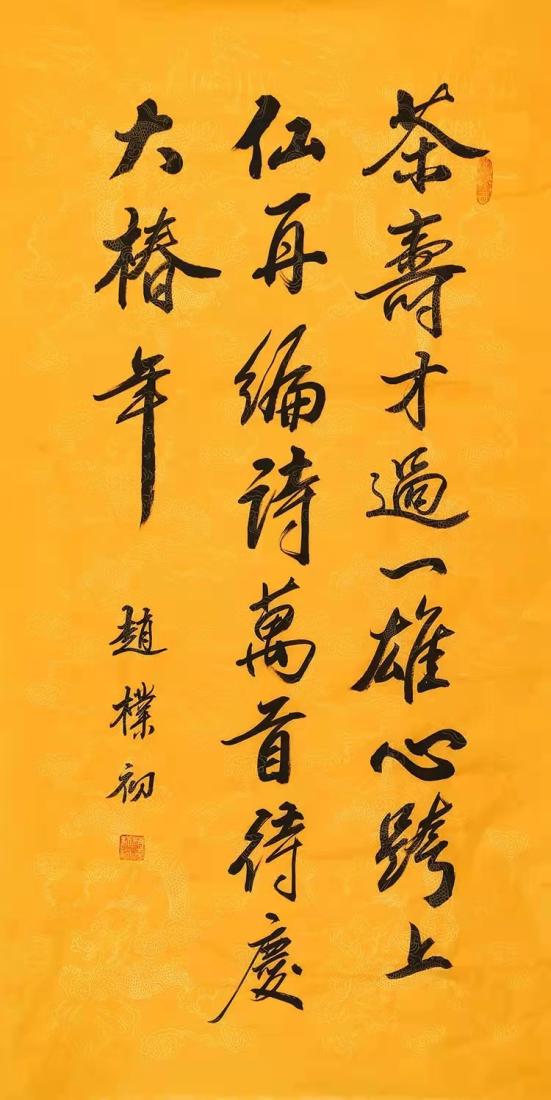 茶壽才過一雄心跨上
仙再編詩萬首待慶
大椿年
趙樸初